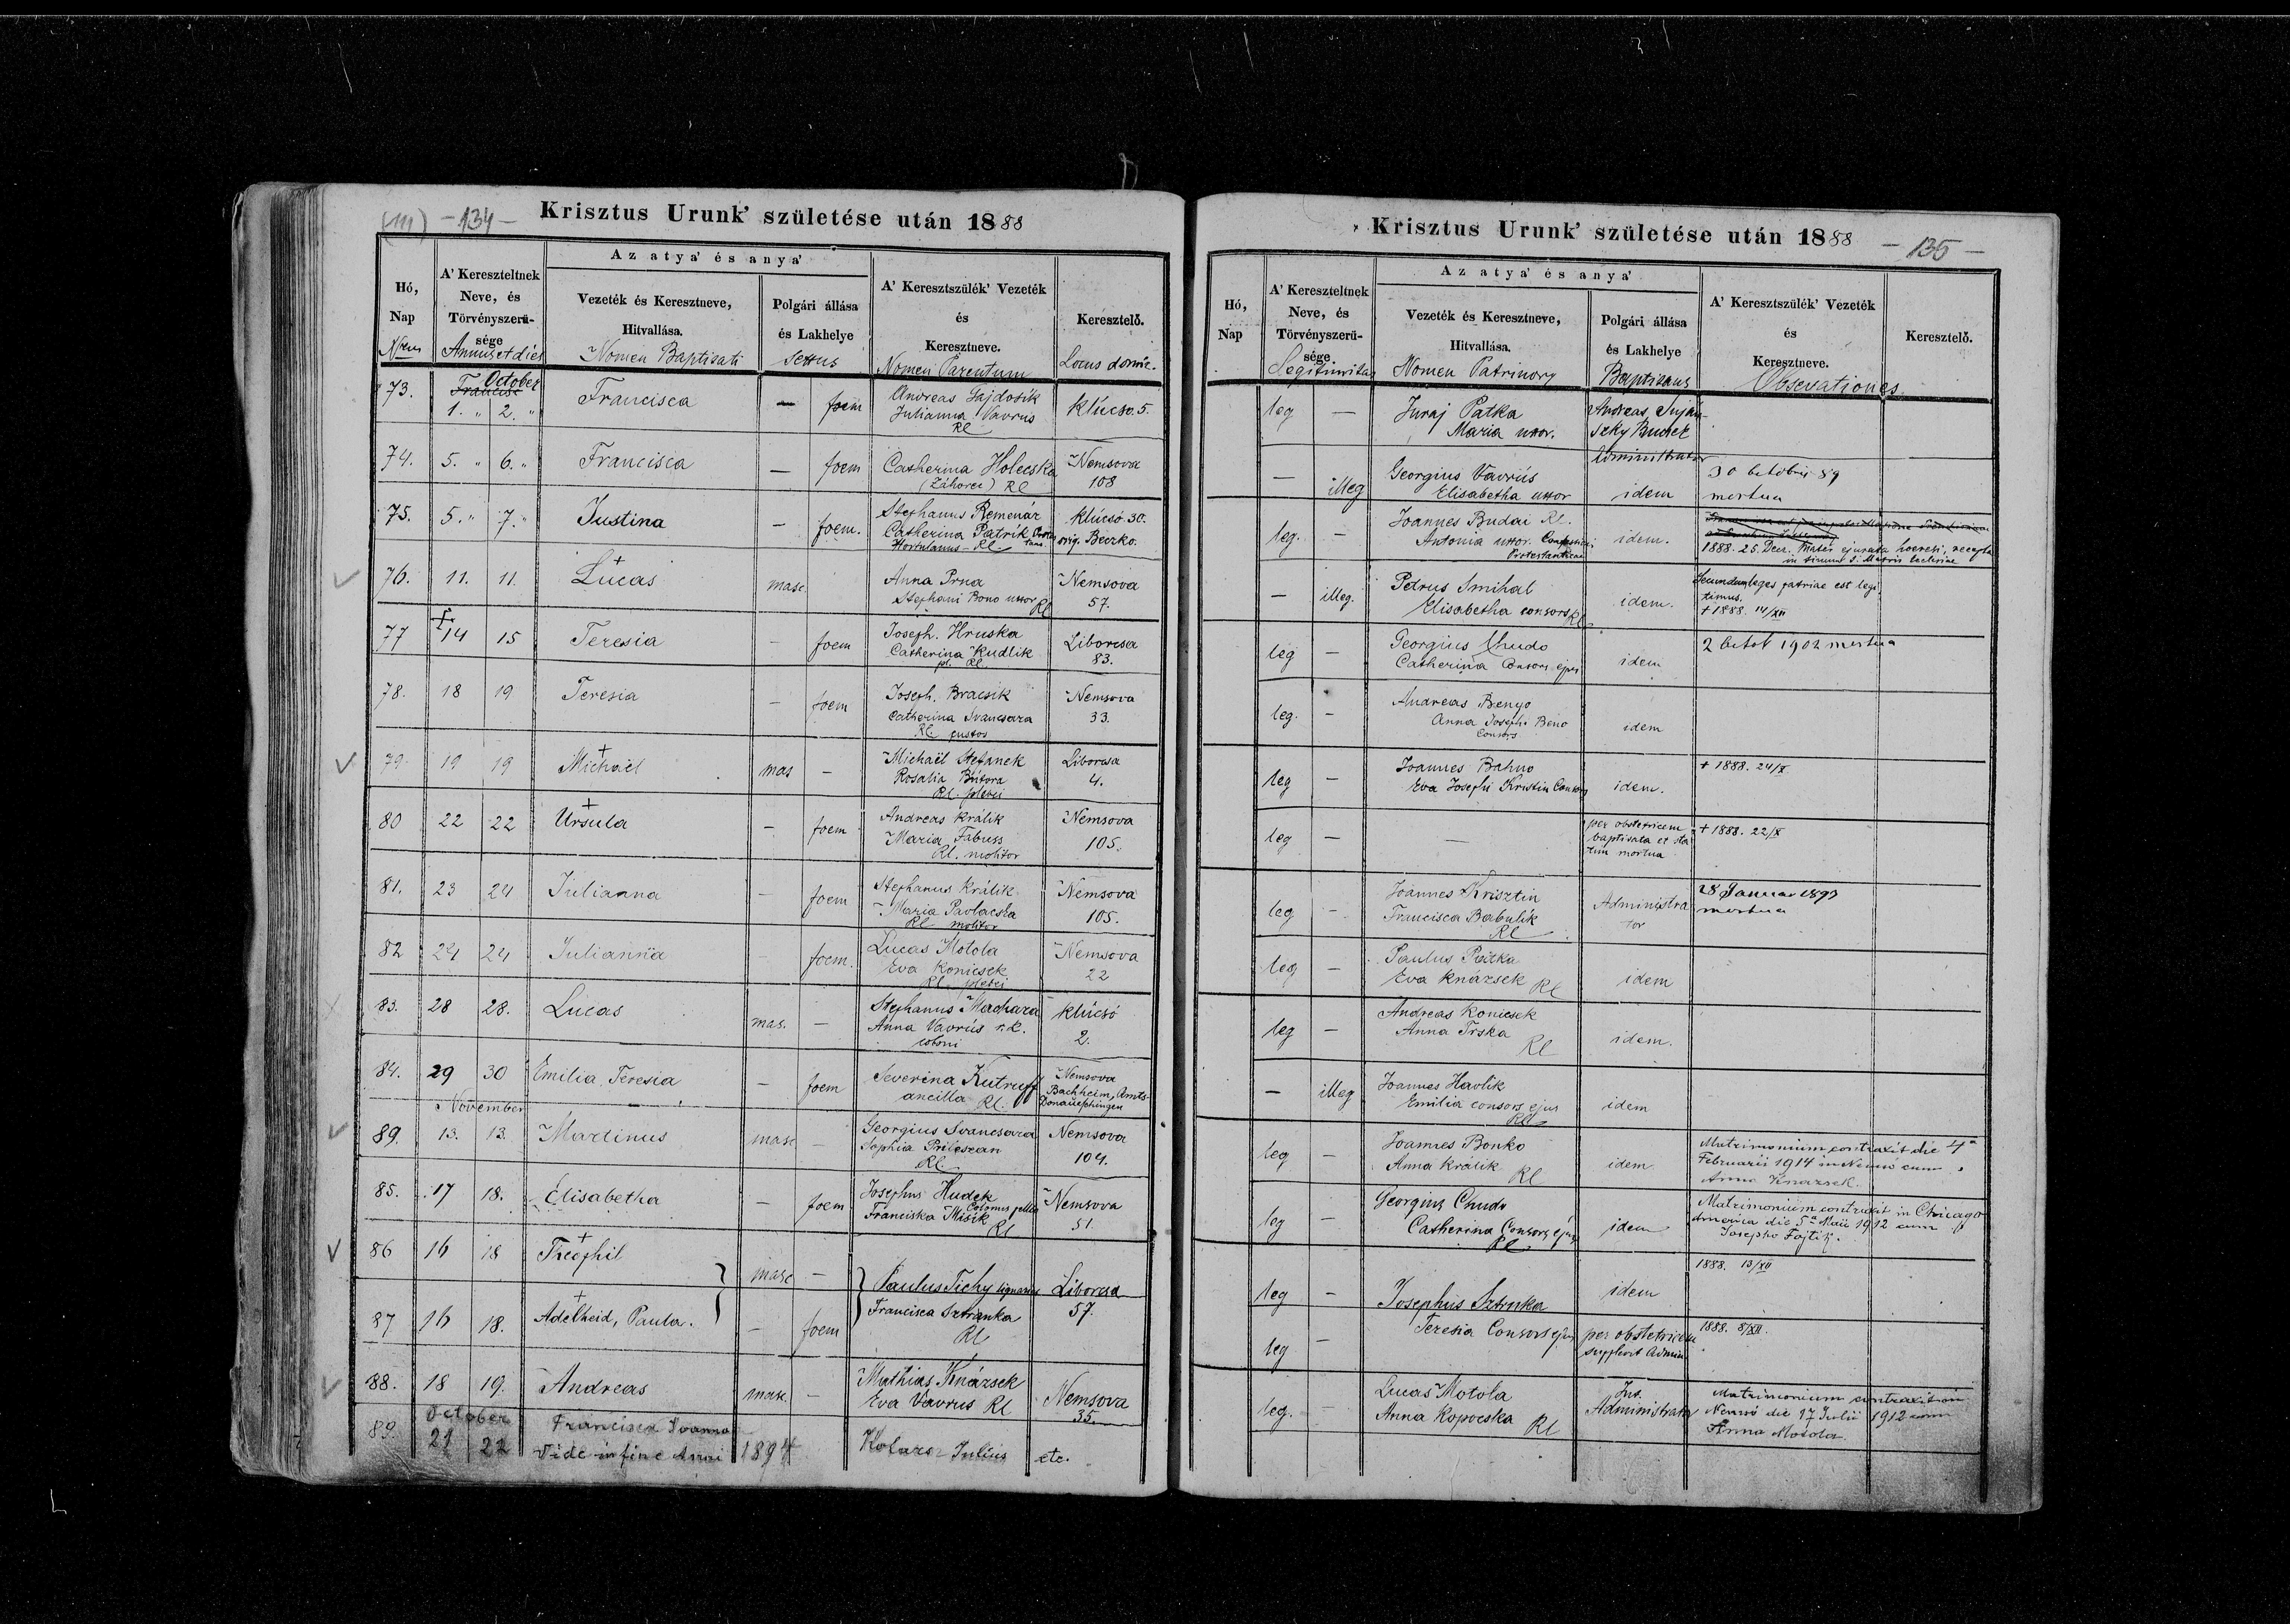 (111) -134- Krisztus Urunk' születése után 1888
Hó,
Nap
Nrus
A' Kereszteltnek
Neve, és
Törvényszerü-
sége
Annus et dies
Az atya' és anya'
Vezeték és Keresztneve,
Hitvallása.
Nomen Baptisati
Polgári állása
és Lakhelye
Sexus
A' Keresztszülék' Vezeték
és
Keresztneve.
Nomen Parentum
Keresztelő.
Locus domic.
October
73. 1. " 2. " Francisca — foem
Andreas Gajdosik
Julianna Vavrus
Rl
Klúcso. 5.
74. 5. " 6. " Francisca — foem
Catherina Holecska
(Záhorec) Rl
Nemsova
108
75. 5. " 7. " Justina — foem.
Stephanus Remenár
Catherina Patrík
Hortulanus Rl
Klúcsó 30.
orig. Beczko.
76. 11. 11. Lucas masc
Anna Prna
Stephani Bono uxor Rl
Nemsova
57.
77 14 15 Teresia — foem
Joseph. Hruska
Catherina Kudlik
pl. Rl.
Liborcsa
83.
78. 18 19 Teresia — foem
Joseph. Bracsik
Catherina Svancsara
Rl. custos
Nemsova
33.
79. 19 19 Michaël mas —
Michaël Stefanek
Rosalia Bútora
Rl. plebei
Liborcsa
4.
80 22 22 Ursula — foem
Andreas Králik
Maria Fabuss
Rl. molitor
Nemsova
105.
81. 23 24 Julianna — foem
Stephanus Králik
Maria Pavlacska
Rl molitor
Nemsova
105.
82 24 24 Julianna — foem.
Lucas Motola
Eva Konicsek
Rl. plebei
Nemsova
22
83. 28 28. Lucas mas. —
Stephanus Machara
Anna Vavrús r.c.
coloni
Klúcsó
2.
84. 29 30 Emilia, Teresia — foem
Severina Kutruff
ancilla Rl.
Nemsova
Bachheim, Amts-
Donaueschingen
November
89. 13. 13. Martinus masc —
Georgius Svancsara
Sophia Prileszan
Rl
Nemsova
104.
85. 17 18. Elisabetha — foem
Josephus Hudek
Franciska Misik
Rl
Nemsova
51.
86 16 18 Theophil masc —
87 16 18. Adelheid, Paula. — foem
Paulus Tichy lignarius
Francisca Sztranka
Rl
Liborcsa
57.
88. 18 19. Andreas masc. —
Mathias Knázsek
Eva Vavrus Rl
Nemsova
35.
October
89. 21 22 Francisca Joanna
Vide in fine Anni 1894 Kolarz Julius etc.
Krisztus Urunk' születése után 1888 -135-
Hó,
Nap
A' Kereszteltnek
Neve, és
Törvényszerü-
sége
Legitimitas
Az atya' és anya'
Vezeték és Keresztneve,
Hitvallása.
Nomen Patrinorum
Polgári állása
és Lakhelye
Baptisans
A' Keresztszülék' Vezeték
és
Keresztneve.
Keresztelő.
Observationes
leg —
Juraj Patka
Maria uxor.
Administrator
— illeg
Georgius Vavrús
Elisabetha uxor
idem
30 octobris 89
mortua
leg. —
Joannes Budai Rl.
Antonia uxor. Confessionis
Protestanticae
idem.
1888. 25. Decr. Mater ejurata hoeresi, recepta
in sinum S. Matris Ecclesiae
— illeg.
Petrus Smihal
Elisabetha consors Rl
idem.
Secundum leges patriae est legi
timus.
+ 1888. 14/XII
leg —
Georgius Chudo
Catherina Consors ejus
idem
2 octob 1902 mortua
leg. —
Andreas Benyo
Anna Josephi Beno
Consors
idem
leg —
Joannes Bahno
Eva Josephi Kristin Consors
idem.
+ 1888. 24/X
leg — —
per obstetricem
baptisata et sta-
tim mortua
+ 1888. 22/X
leg —
Joannes Krisztin
Francisca Babulík
Rl
Administra
tor
28 Januar 1890
mortua
leg —
Paulus Patka
Eva Knázsek Rl
idem
leg —
Andreas Konicsek
Anna Trska
Rl
idem.
— illeg
Joannes Havlik
Emilia consors ejus
Rl
idem
leg —
Joannes Bonko
Anna Králik
Rl
idem
Matrimonium contraxit die 4a
Februarii 1914 in Nemsó cum
Anna Knazsek.
leg —
Georgius Chudo
Catherina Consors ejus
Rl
idem
Matrimonium contraxit in Chicago
America die 5a Maii 1912 cum
Josepho Fojtik.
leg —
Josephus Sztruka
Teresia Consors ejus
idem
1888. 13/XII
leg —
per obstetricem
supplevit Admin.
1888. 8/XII.
leg. —
Lucas Motola
Anna Kopocska Rl
Administrator
Matrimonium contraxit in
Nemsó die 17 Julii 1912 cum
Anna Motola.